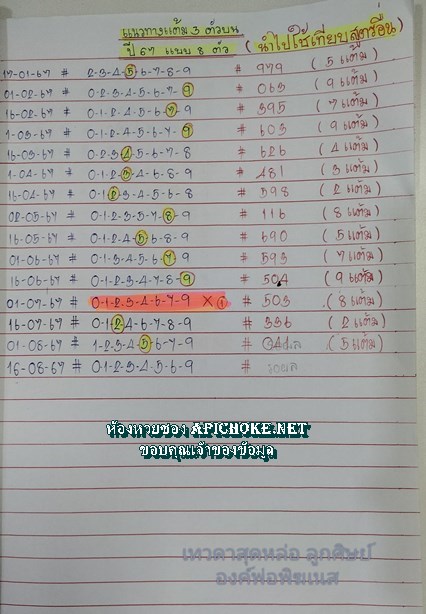 แนวทางแต้ม 3 ตัวบน
ปี 67 แบบ 8 ตัว (นำไปใช้เทียบสูตรอื่น)
17-01-67 # 2-3-4-5-6-7-8-9 # 979 (5 แต้ม)
01-02-67 # 0-1-2-3-4-5-6-9 # 063 (9 แต้ม)
16-02-67 # 0-1-2-3-4-5-7-9 # 395 (7 แต้ม)
1-03-67 # 0-1-2-4-5-6-7-9 # 603 (9 แต้ม)
16-03-67 # 0-2-3-4-5-6-7-8 # 626 (4 แต้ม)
1-04-67 # 0-1-2-3-4-5-6-9 # 481 (3 แต้ม)
16-04-67 # 0-1-2-3-4-5-6-8 # 598 (2 แต้ม)
02-05-67 # 0-1-2-3-5-7-8-9 # 116 (8 แต้ม)
16-05-67 # 0-1-2-4-5-6-8-9 # 690 (5 แต้ม)
01-06-67 # 0-1-2-3-5-6-7-9 # 593 (7 แต้ม)
16-06-67 # 0-1-2-3-4-7-8-9 # 504 (9 แต้ม)
01-07-67 # 0-1-2-3-4-6-7-9 X 1 # 503 (8 แต้ม)
16-07-67 # 0-1-2-4-6-7-8-9 # 336 (2 แต้ม)
01-08-67 # 1-2-3-4-5-6-7-9 # (5 แต้ม)
16-08-67 # 0-1-2-3-4-5-6-9 # รอผล
ห้องหวยซอง APICHOKE.NET
ขอบคุณเจ้าของข้อมูล
เทวดาสุดหล่อ ลูกศิษย์
องค์พ่อพิฆเนส